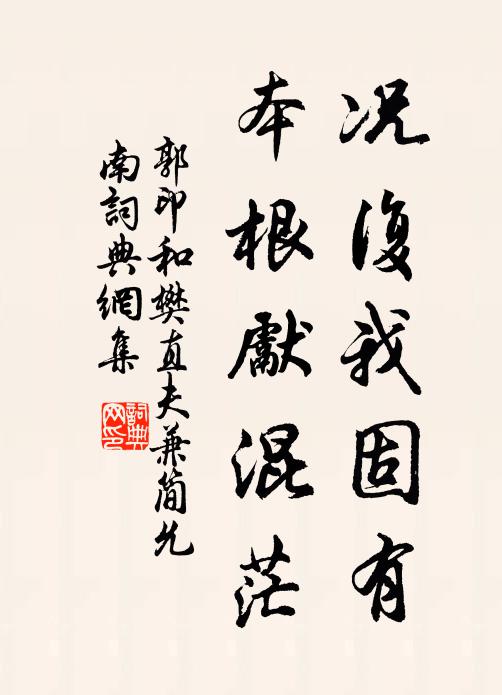 况復我固有
本根獻混茫
郭印和樊直夫兼簡允
南詞典網集
詞典
网印